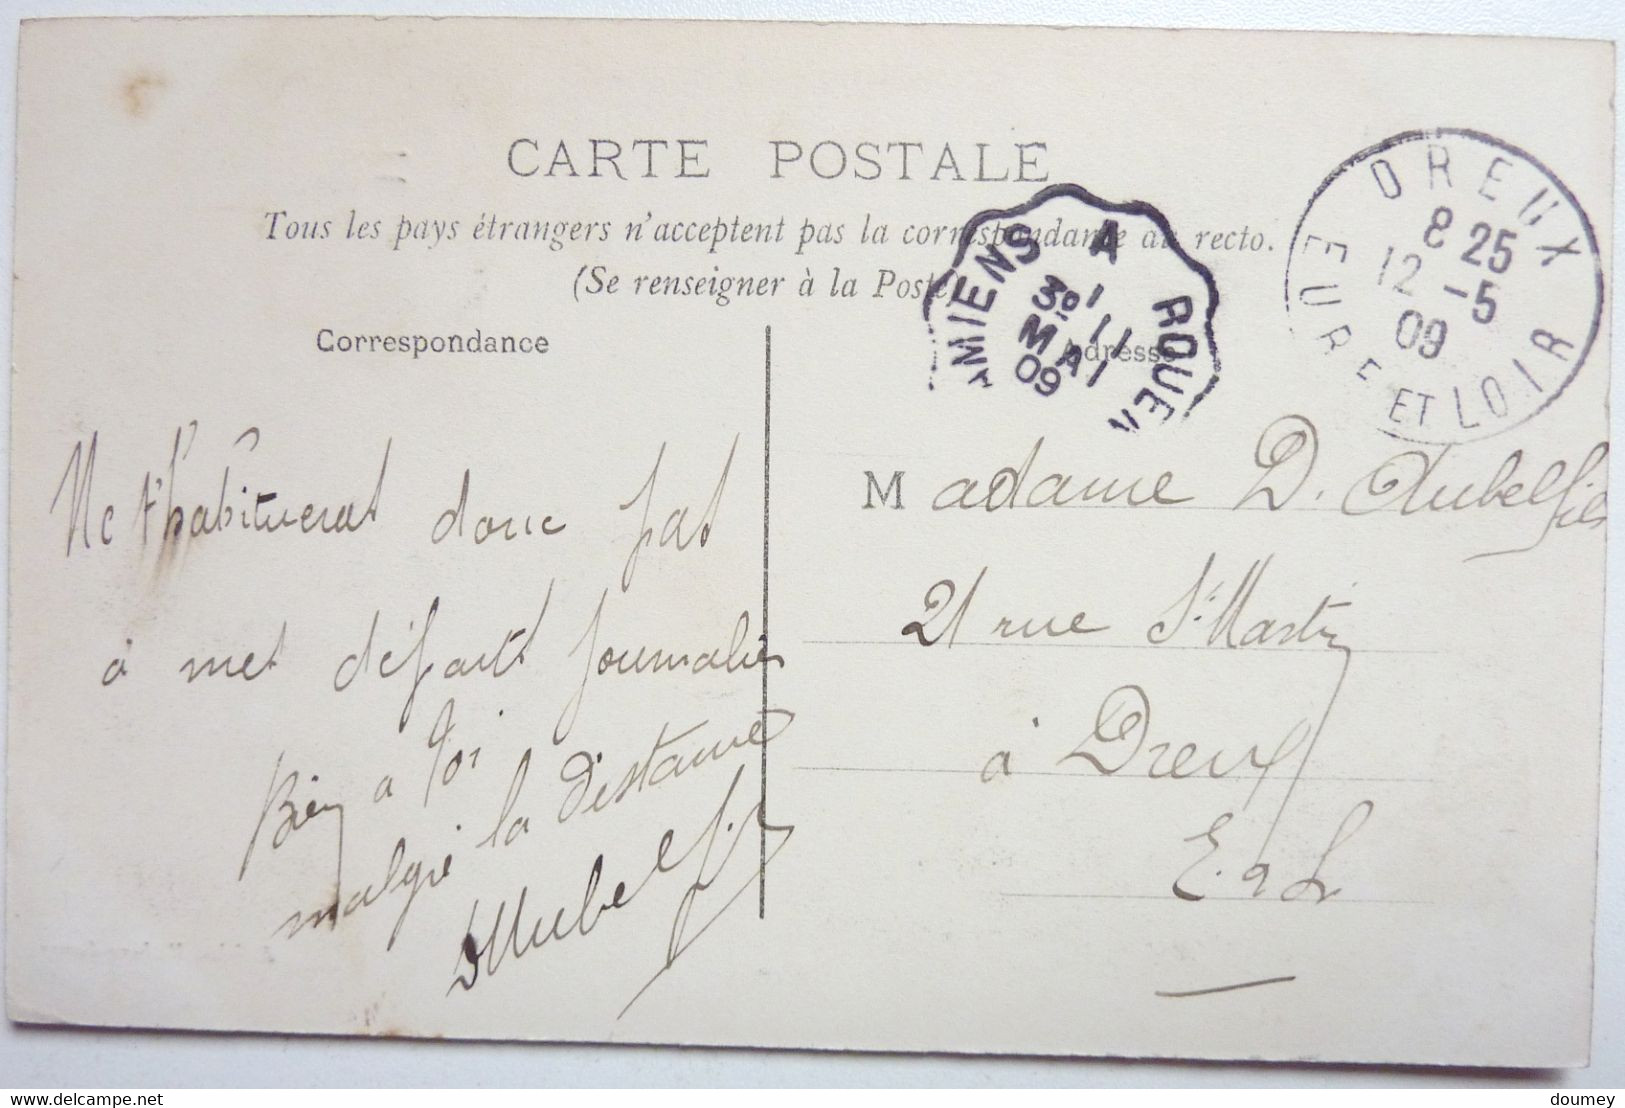 CARTE POSTALE
Tous les pays étrangers n'acceptent pas la correspondance au recto.
(Se renseigner à la Poste)
Correspondance
Adresse
AMIENS A ROUEN
3º 1
11
MAI
09
DREUX
8 25
12 -5
09
EURE ET LOIR
Ne t'habitueras donc pas
à mes départs journaliers
Bien a toi
malgré la distance
DAubel fils
Madame D. Aubel fils
21 rue St Martin
à Dreux
E. & L
www.delcampe.net
doumey